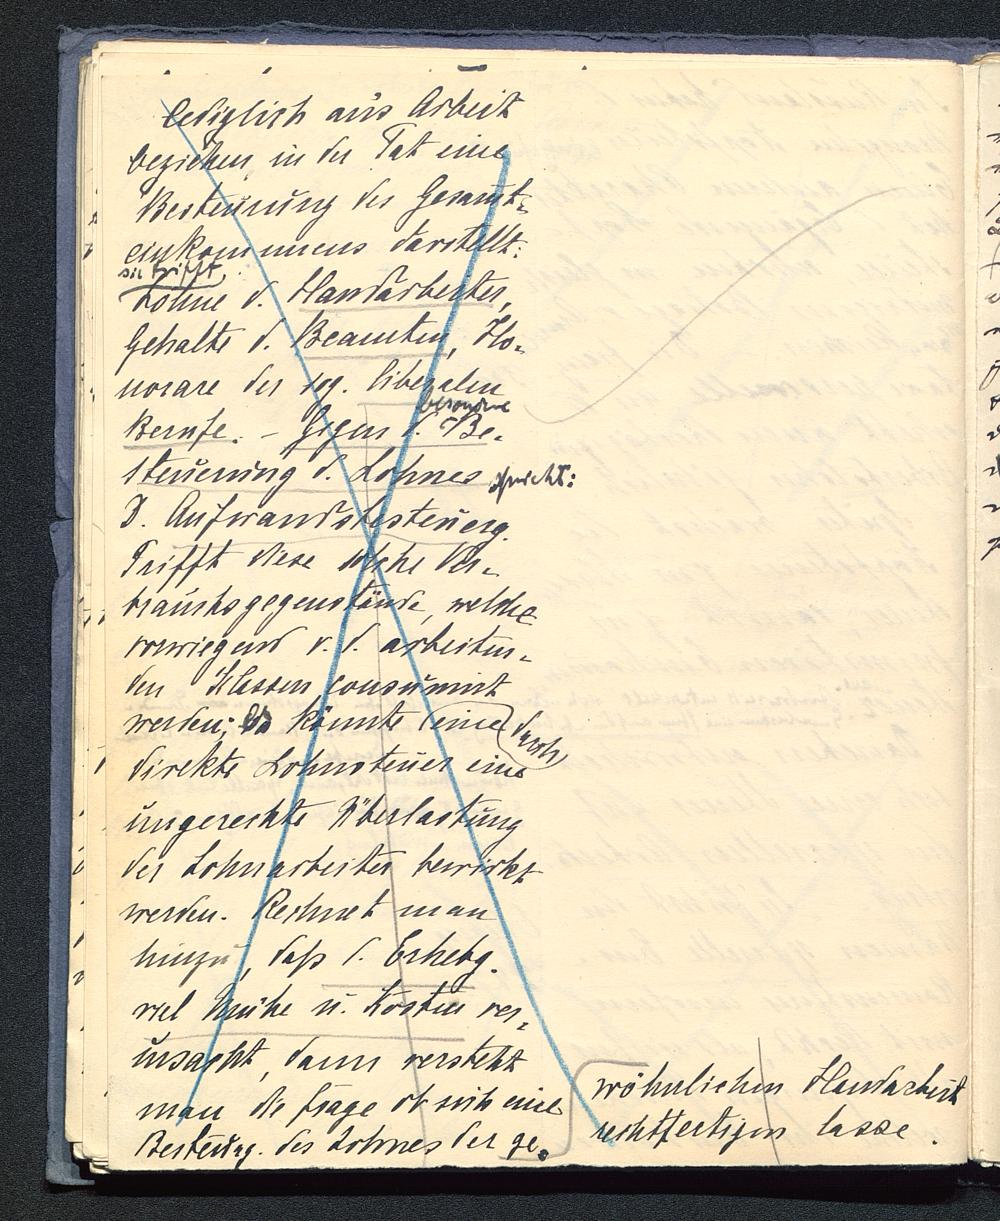 lediglich aus Arbeit
beziehen, in der Tat eine
Besteuerung des Gesamt-
einkommens darstellt:
sie trifft
Löhne d. Handarbeiter,
Gehalte d. Beamten, Ho-
norare der sog. liberalen
besondere
Berufe. - Gegen d. Be-
steuerung d. Lohnes spricht:
D. Aufwandsbesteuerg.
Trifft diese solche Ver-
brauchsgegenstände, welche
vorwiegend v. d. arbeiten-
den Klassen consumirt
werden; so könnte (eine) durch
direkte Lohnsteuer eine
ungerechte Überlastung
der Lohnarbeiter bewirkt
werden. Rechnet man
hinzu, daß d. Erhebg.
viel Mühe u. Kosten ver-
ursacht, dann versteht
man die Frage ob sich eine
Besteurg. des Lohnes der ge-
wöhnlichen Handarbeit
rechtfertigen lasse.